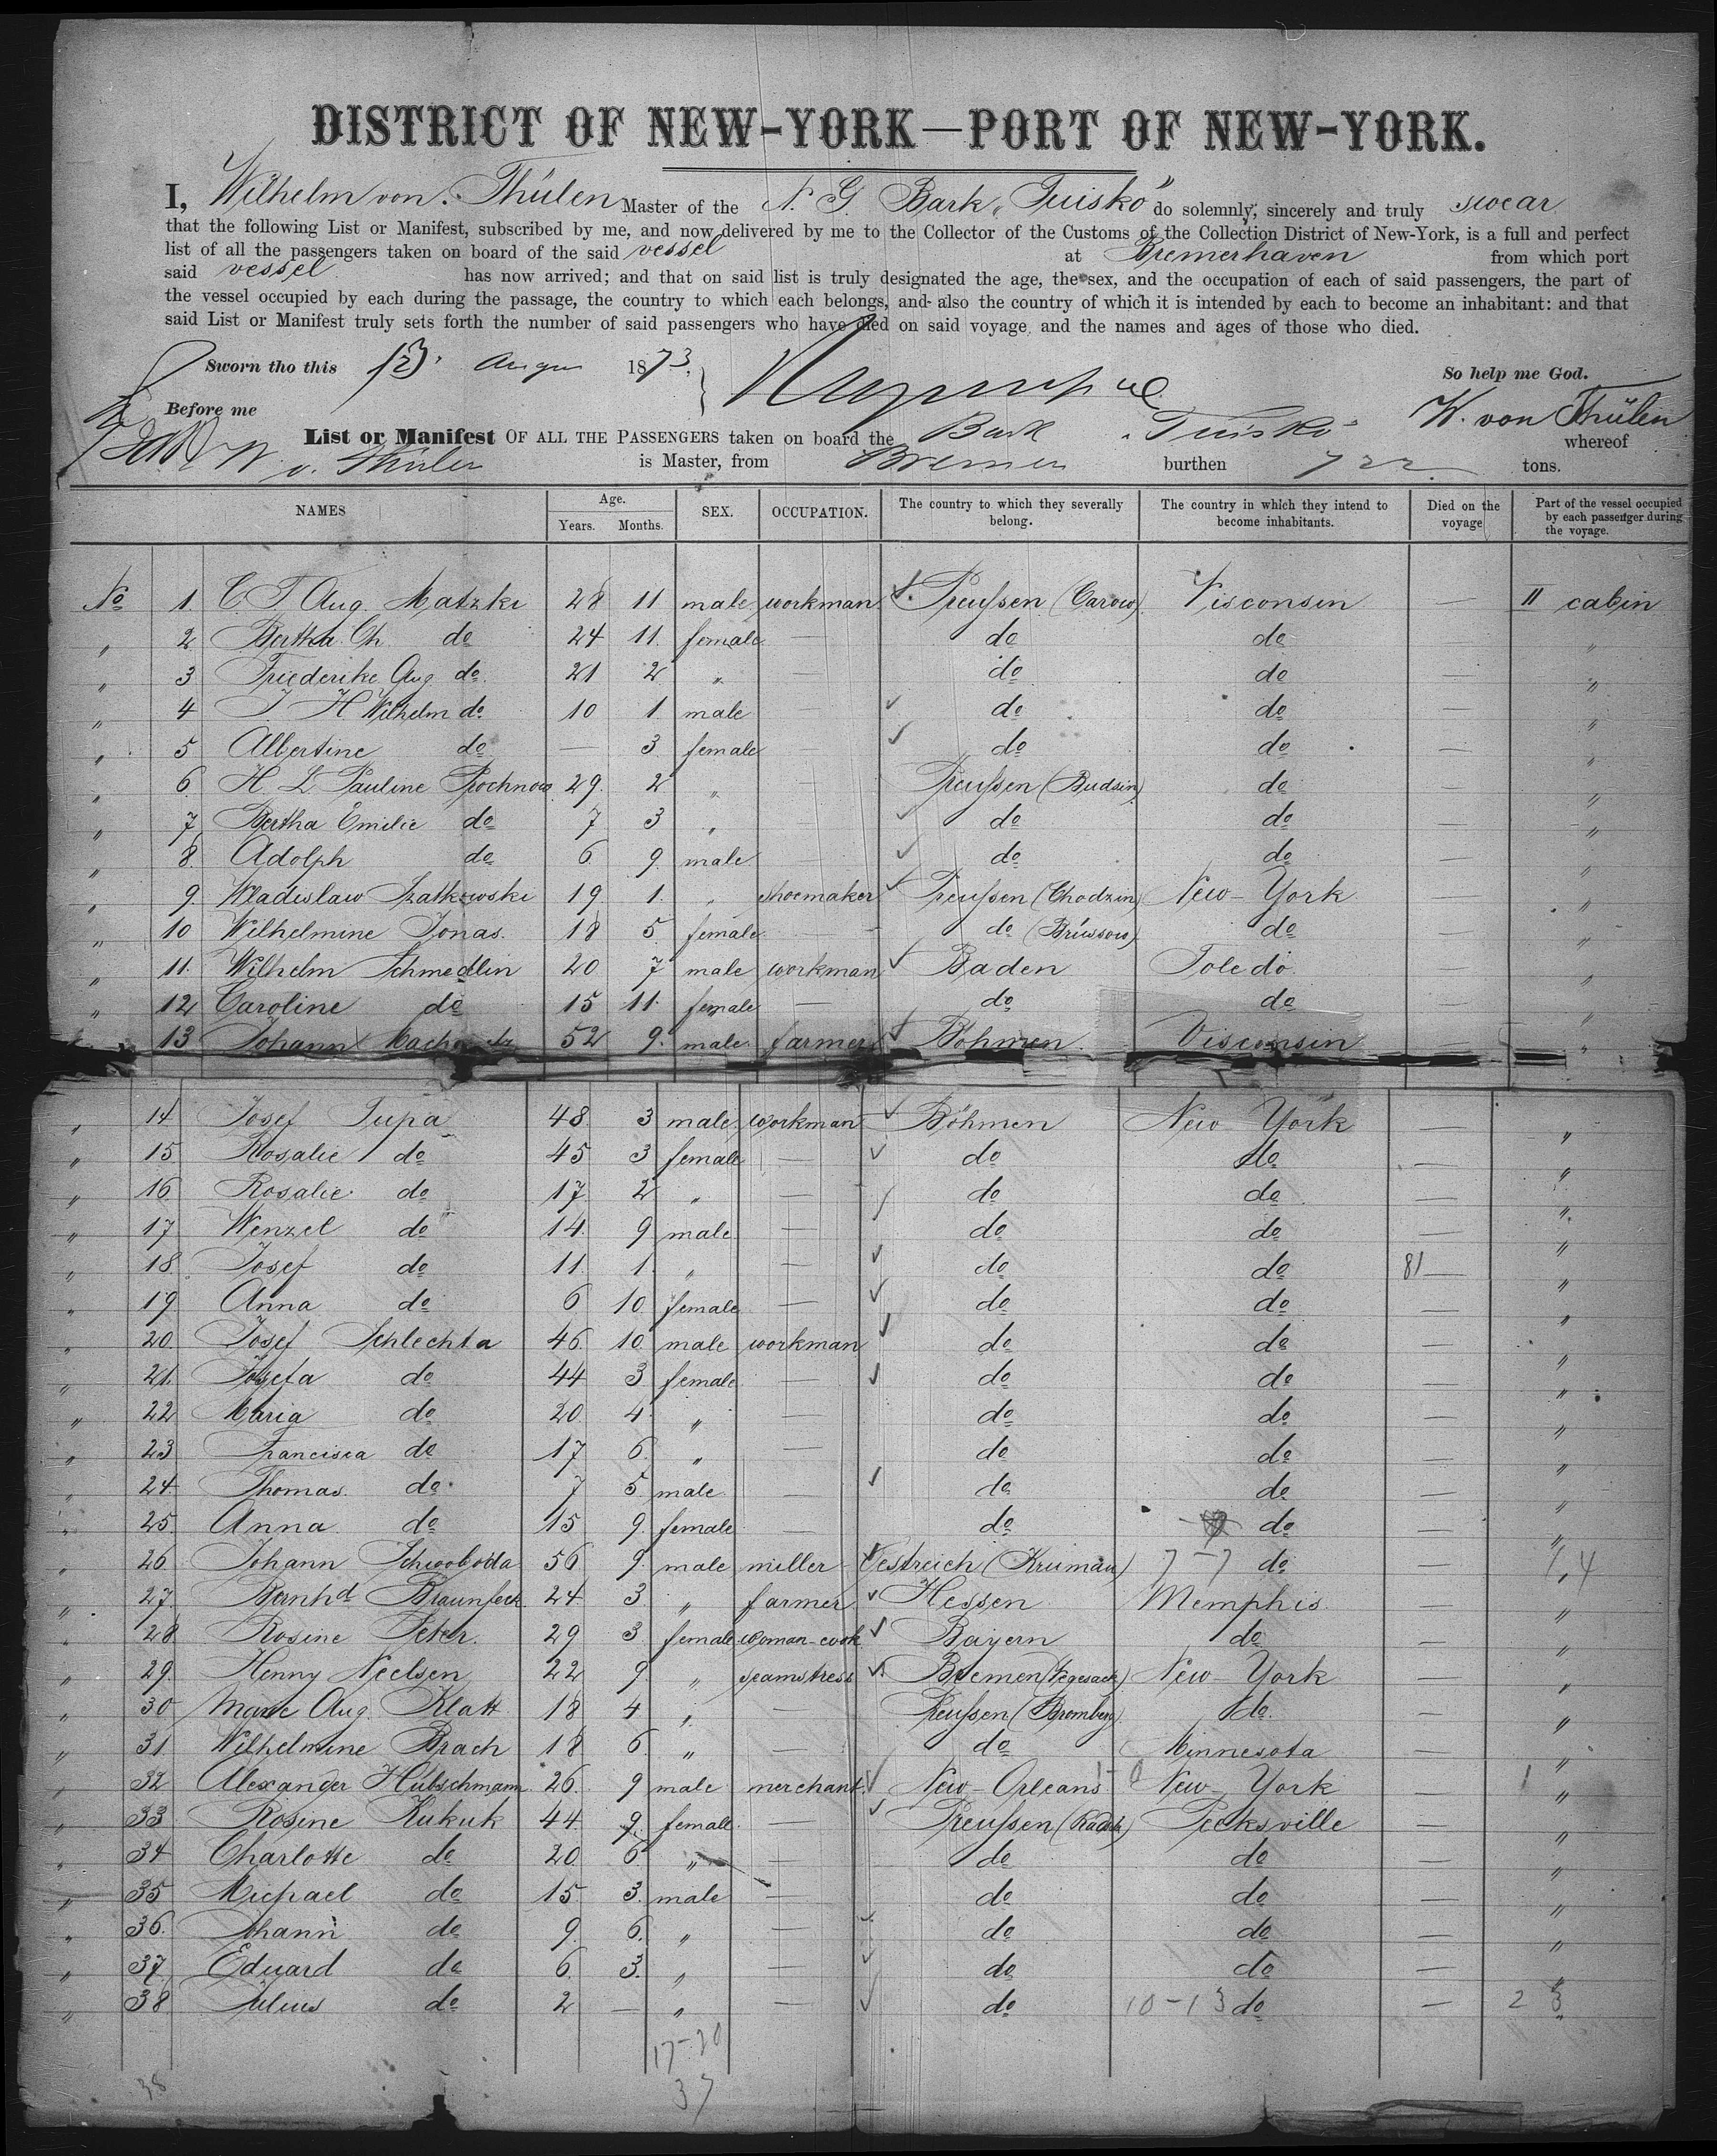 DISTRICT OF NEW-YORK—PORT OF NEW-YORK.
I, Wilhelm von Thülen Master of the N. G. Bark „Tuisko" do solemnly, sincerely and truly swear
that the following List or Manifest, subscribed by me, and now delivered by me to the Collector of the Customs of the Collection District of New-York, is a full and perfect
list of all the passengers taken on board of the said vessel at Bremerhaven from which port
said vessel has now arrived; and that on said list is truly designated the age, the sex, and the occupation of each of said passengers, the part of
the vessel occupied by each during the passage, the country to which each belongs, and also the country of which it is intended by each to become an inhabitant: and that
said List or Manifest truly sets forth the number of said passengers who have died on said voyage, and the names and ages of those who died.
Sworn tho this 1873. So help me God.
Before me W. von Thülen
List or Manifest OF ALL THE PASSENGERS taken on board the Bark „Tuisko" whereof
W. v. Thülen is Master, from Bremen burthen 722 tons.
NAMES Age. Years. Months. SEX. OCCUPATION. The country to which they severally belong. The country in which they intend to become inhabitants. Died on the voyage Part of the vessel occupied by each passenger during the voyage.
No 1. C F Aug. Matzke 28 11 male workman Preußen (Carow) Visconsin — II cabin
„ 2 Bertha Ch. do 24 11. female — do do — „
„ 3 Friederike Aug do 21 2 „ — do do — „
„ 4 J H Wilhelm do 10 1. male — do do — „
„ 5 Albertine do — 3 female — do do — „
„ 6 H L Pauline Prochnow 29. 2 „ — Preußen (Budsin) do — „
„ 7 Bertha Emilie do 7 3 „ — do do — „
„ 8. Adolph do 6 9. male — do do — „
„ 9. Wladislaw Szatkowski 19. 1. „ shoemaker Preußen (Chodzin) New-York — „
„ 10 Wilhelmine Jonas. 18 5. female — do (Brüssow) do — „
„ 11. Wilhelm Schmedlin 20 7 male workman Baden Toledo. — „
„ 12 Caroline do 15 11. female — do do — „
13 Johann 52 9. male farmer Böhmen Visconsin „
„ 14 Josef Tupa 48. 3 male workman Böhmen New York — „
„ 15. Rosalie do 45 3 female — do do — „
„ 16. Rosalie do 17. 2 „ — do do — „
„ 17 Wenzel do 14. 9 male — do do — „
„ 18. Josef do 11. 1. „ — do do 81 — „
„ 19 Anna do 6 10. female — do do — „
„ 20. Josef Schlechta 46. 10. male workman do do — „
„ 21. Josefa do 44 3 female — do do — „
„ 22 Maria do 20. 4 „ — do do — „
„ 23 Francisca do 17 6. „ — do do — „
„ 24. Thomas. do 7 5. male — do do — „
„ 25. Anna. do 15 9. female — do do — „
„ 26. Johann Schwoboda 56 9. male miller Oestreich (Krumau) 7-7 do — 1,4
„ 27. Bernhd Braunfeck 24. 3. „ farmer Hessen Memphis. — „
„ 28. Rosine Peter. 29 3 female woman-cook Bayern do — „
„ 29. Henny Neelsen 22 9. „ seamstress Bremen (Vegesack) New-York — „
„ 30 Marie Aug. Klatt 18 4 „ — Preußen (Bromberg) do. — „
„ 31. Wilhelmine Brach 18 6. „ — do Minnesota — „
„ 32 Alexander Hübschmann 26. 9 male merchant. New-Orleans New York — 1 „
„ 33 Rosine Kukuk 44. 9. female — Preußen Pecksville — „
„ 34 Charlotte do 20. 6 „ — do do — „
„ 35 Michael do 15. 3. male — do do — „
„ 36. Johann do 9. 6. „ — do do — „
„ 37. Eduard do 6. 3. „ — do do — „
„ 38 Julius do 2 — „ — do 10-13 do — 2 3
38 17-20
37